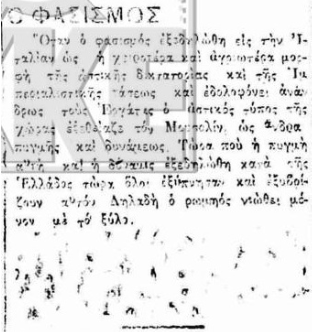 Ο ΦΑΣΙΣΜΟΣ
Ὅταν ὁ φασισμός ἐξεδηλώθη εἰς τήν Ἰ-
ταλίαν ὡς ἡ χειροτέρα καί ἀγριωτέρα μορ-
φή τῆς ἀστικῆς δικτατορίας καί τῆς Ἰμ
περιαλιστικῆς τάσεως καί ἐδολοφόνει ἀνάν-
δρως τούς Ἐργάτες ὁ ἀστικός τύπος τῆς
χώρας τόν Μουσολίνι ὡς ἄνδρα
πυγμῆς καί δυνάμεως. Τώρα πού ἡ πυγμή
αὐτή καί ἡ δύναμις ἐξεδηλώθη κατά τῆς
Ἑλλάδος τώρα ὅλοι ἐξύπνησαν καί ἐξυβρί
ζουν αὐτόν Δηλαδή ὁ ρωμηός νιώθει μό-
νον μέ τό ξύλο.